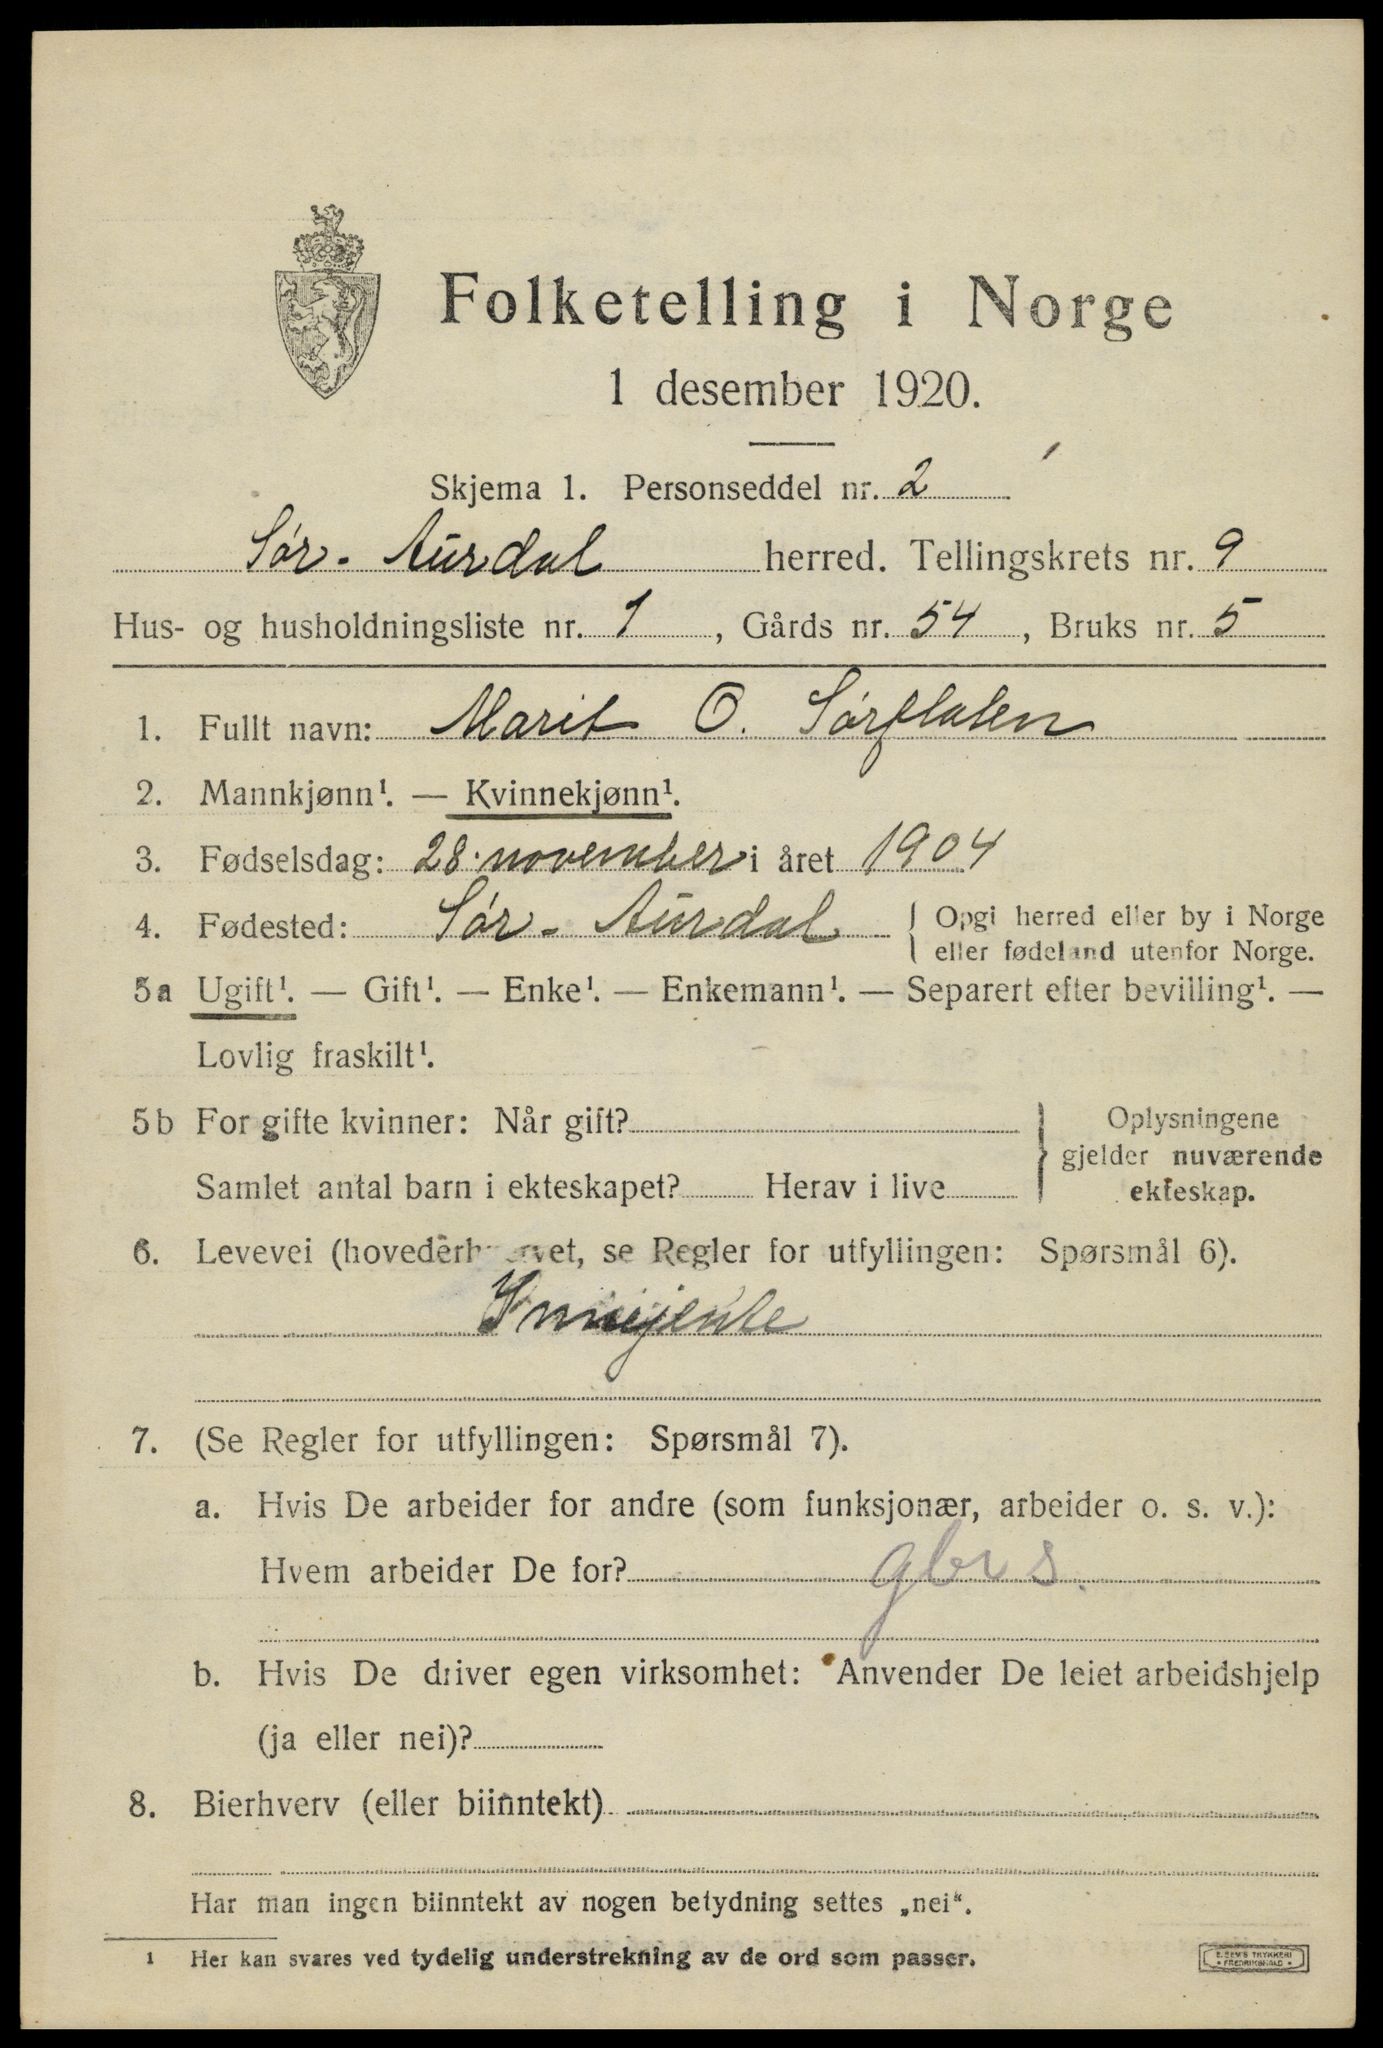 Folketelling i Norge
1 desember 1920.
Skjema 1. Personseddel nr. 2
Sør-Aurdal herred. Tellingskrets nr. 9
Hus- og husholdningsliste nr. 1, Gårds nr. 54, Bruks nr. 5
1. Fullt navn: Marit O. Sørflaten
2. Mannkjønn¹. — Kvinnekjønn¹.
3. Fødselsdag: 28. november i året 1904
4. Fødested: Sør-Aurdal { Opgi herred eller by i Norge
eller fødeland utenfor Norge.
5a Ugift¹. — Gift¹. — Enke¹. — Enkemann¹. — Separert efter bevilling¹. —
Lovlig fraskilt¹.
5b For gifte kvinner: Når gift?
Samlet antal barn i ekteskapet? Herav i live
} Oplysningene
gjelder nuværende
ekteskap.
6. Levevei (hovederhvervet, se Regler for utfyllingen: Spørsmål 6).
Innejente
7. (Se Regler for utfyllingen: Spørsmål 7).
a. Hvis De arbeider for andre (som funksjonær, arbeider o. s. v.):
Hvem arbeider De for? gbrs.
b. Hvis De driver egen virksomhet: Anvender De leiet arbeidshjelp
(ja eller nei)?
8. Bierhverv (eller biinntekt)
Har man ingen biinntekt av nogen betydning settes „nei“.
1 Her kan svares ved tydelig understrekning av de ord som passer.
E. SEM'S TRYKKERI
• FREDRIKSHALD •